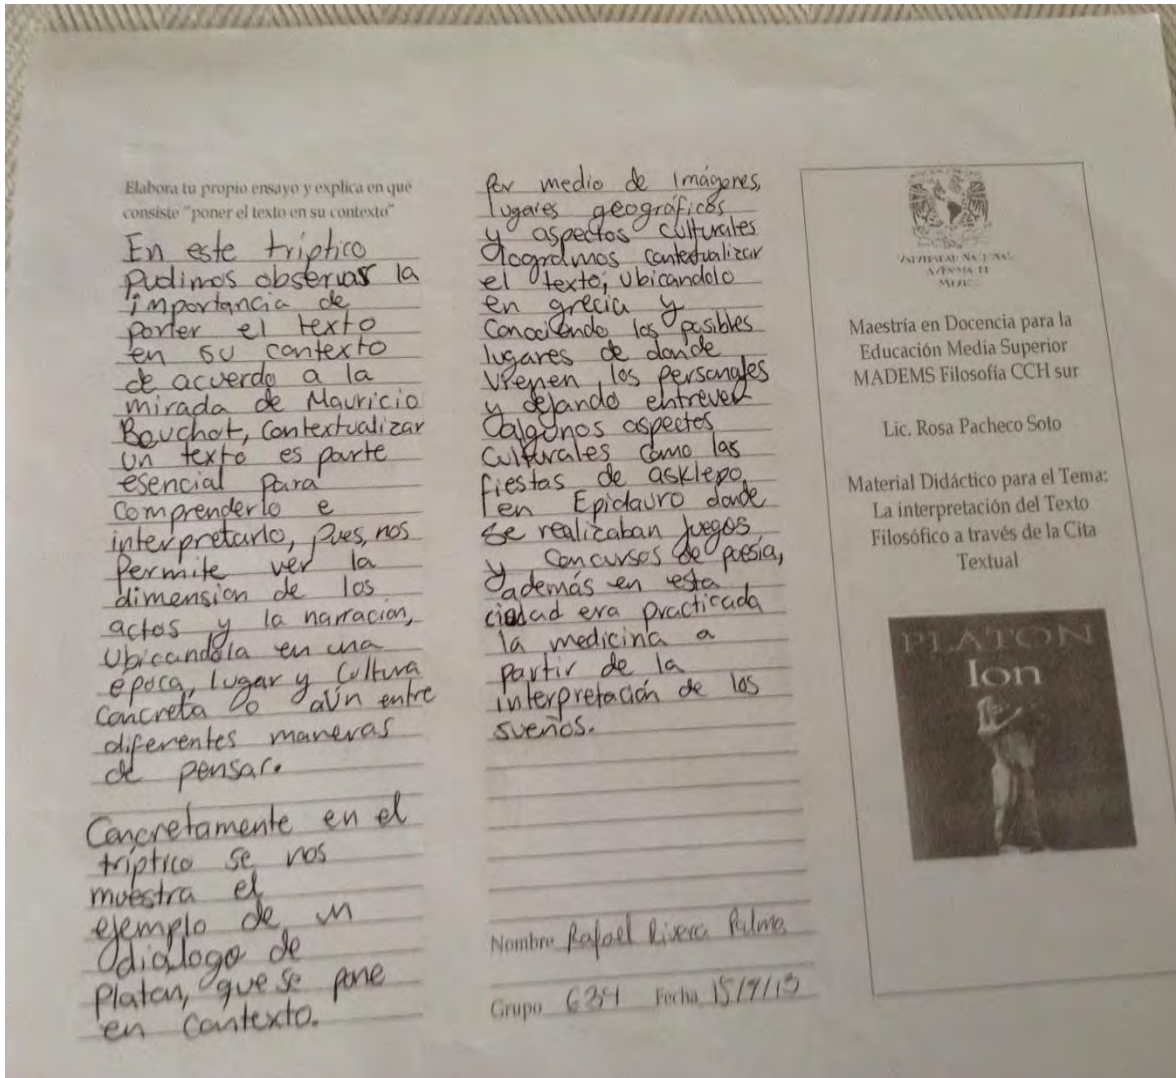 Elabora tu propio ensayo y explica en que
consiste "poner el texto en su contexto"
En este tríptico
pudimos observar la
importancia de
poner el texto
en su contexto
de acuerdo a la
mirada de Mauricio
Beuchot, contextualizar
un texto es parte
esencial para
comprenderlo e
interpretarlo, pues, nos
permite ver la
dimension de los
actos y la narración,
ubicandola en una
época, lugar y cultura
concreta o aún entre
diferentes maneras
de pensar.
Concretamente en el
tríptico se nos
muestra el
ejemplo de un
dialogo de
Platon, que se pone
en contexto.
Por medio de imágenes,
lugares geográficos
y aspectos culturales
logramos contextualizar
el texto, ubicandolo
en grecia y
conociendo los posibles
lugares de donde
vienen los personajes
y dejando entrever
algunos aspectos
culturales como las
fiestas de asklepo
en Epidauro donde
se realizaban juegos
y concursos de poesía,
además en esta
ciudad era practicada
la medicina a
partir de la
interpretación de los
sueños.
Nombre Rafael Rivera Palma
Grupo 634 Fecha
Maestría en Docencia para la
Educación Media Superior
MADEMS Filosofía CCH sur
Lic. Rosa Pacheco Soto
Material Didáctico para el Tema:
La interpretación del Texto
Filosófico a través de la Cita
Textual
PLATON
Ion